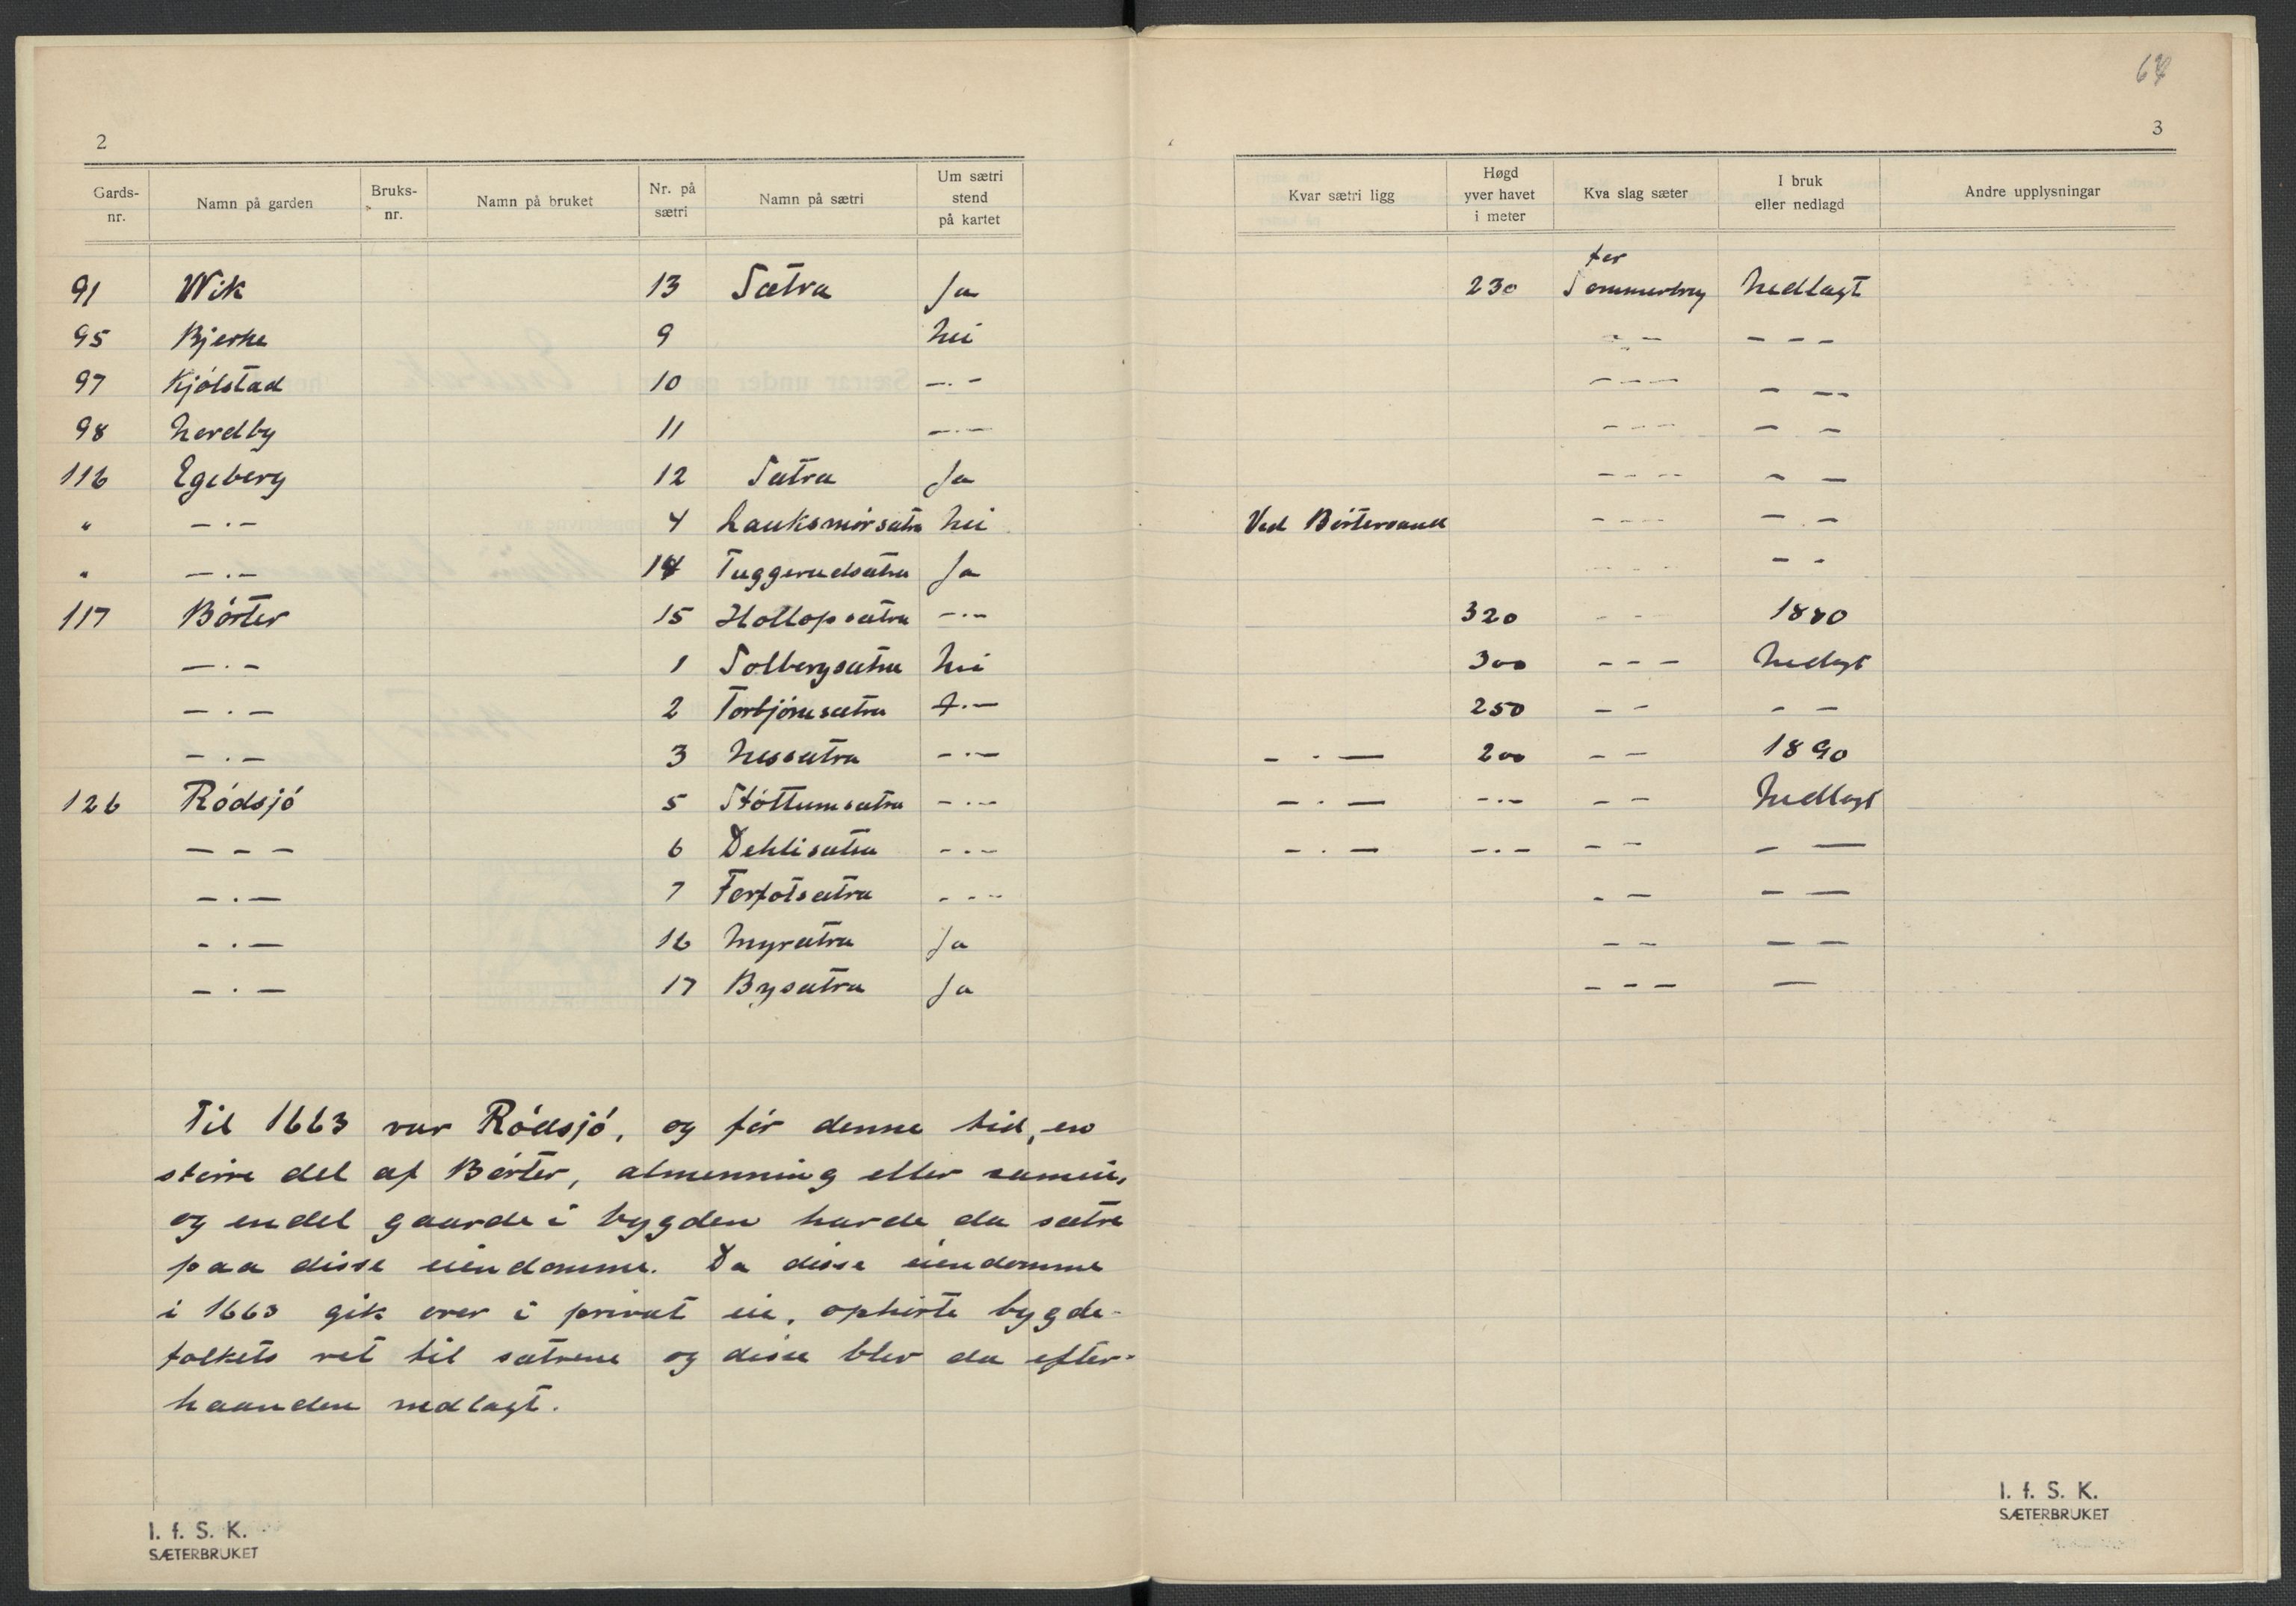 64
2
3
Gards-nr. Namn på garden Bruks-nr. Namn på bruket Nr. på sætri Namn på sætri Um sætri stend på kartet Kvar sætri ligg Høgd yver havet i meter Kva slag sæter I bruk eller nedlagd Andre upplysningar
91 Wik 13 Sætra Ja 230 for Sommerbrug Nedlagt
95 Bjerke 9 Nei - - - - -
97 Kjólstad 10 -.- - - - - - -
98 Nordby 11 -.- - - - - -
116 Egeberg 12 Sætra Ja - - - - - -
" -.- 4 Lauksmórsætra Nei Ved Börtervand - - - - -
" -.- 14 Tuggerudsætra Ja - - - - - -
117 Bórter 15 Hollopsætra -.- 320 - - 1880
-.- 1 Solbergsætra Nei 300 - - - Nedlagt
-.- 2 Torbjórnsætra -.- 250 - - - -
-.- 3 Nessætra -.- -.- 200 - - 1890
126 Ródsjó 5 Stóttumsætra -.- -.- -.- - - Nedlagt
- - - 6 Dehlisætra -.- -.- -.- - - - -
-.- 7 Forfotsætra - - - - - - -
-.- 16 Myrsætra Ja - - - -
-.- 17 Bysætra Ja - - - -
Til 1663 var Ródsjó, og fór denne tid, en
större del af Bórter, almenning eller sameie,
og en del gaarde i bygden havde da sætre
paa disse eiendomme. Da disse eiendomme
i 1663 gik over i privat eie, ophörte bygde-
folkets ret til sætrene og disse blev da efter-
haanden nedlagt.
I. f. S. K.
SÆTERBRUKET
I. f. S. K.
SÆTERBRUKET